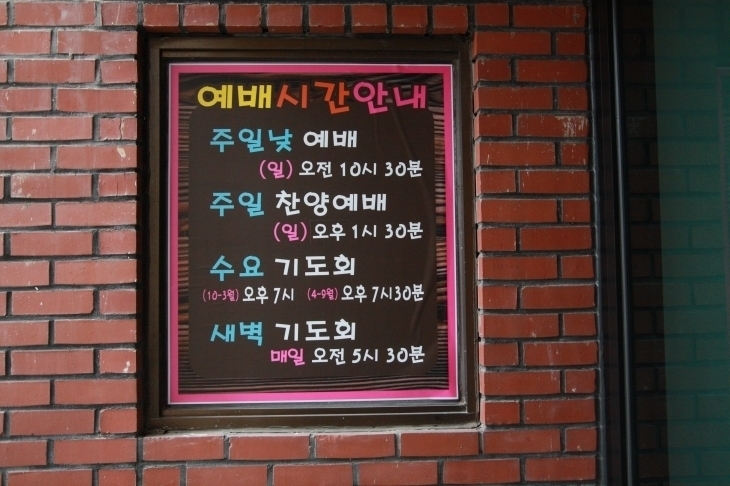 예배시간안내
주일낮 예배
(일) 오전 10시 30분
주일 찬양예배
(일) 오후 1시 30분
수요 기도회
(10-3월) 오후 7시 (4-9월) 오후 7시 30분
새벽 기도회
매일 오전 5시 30분